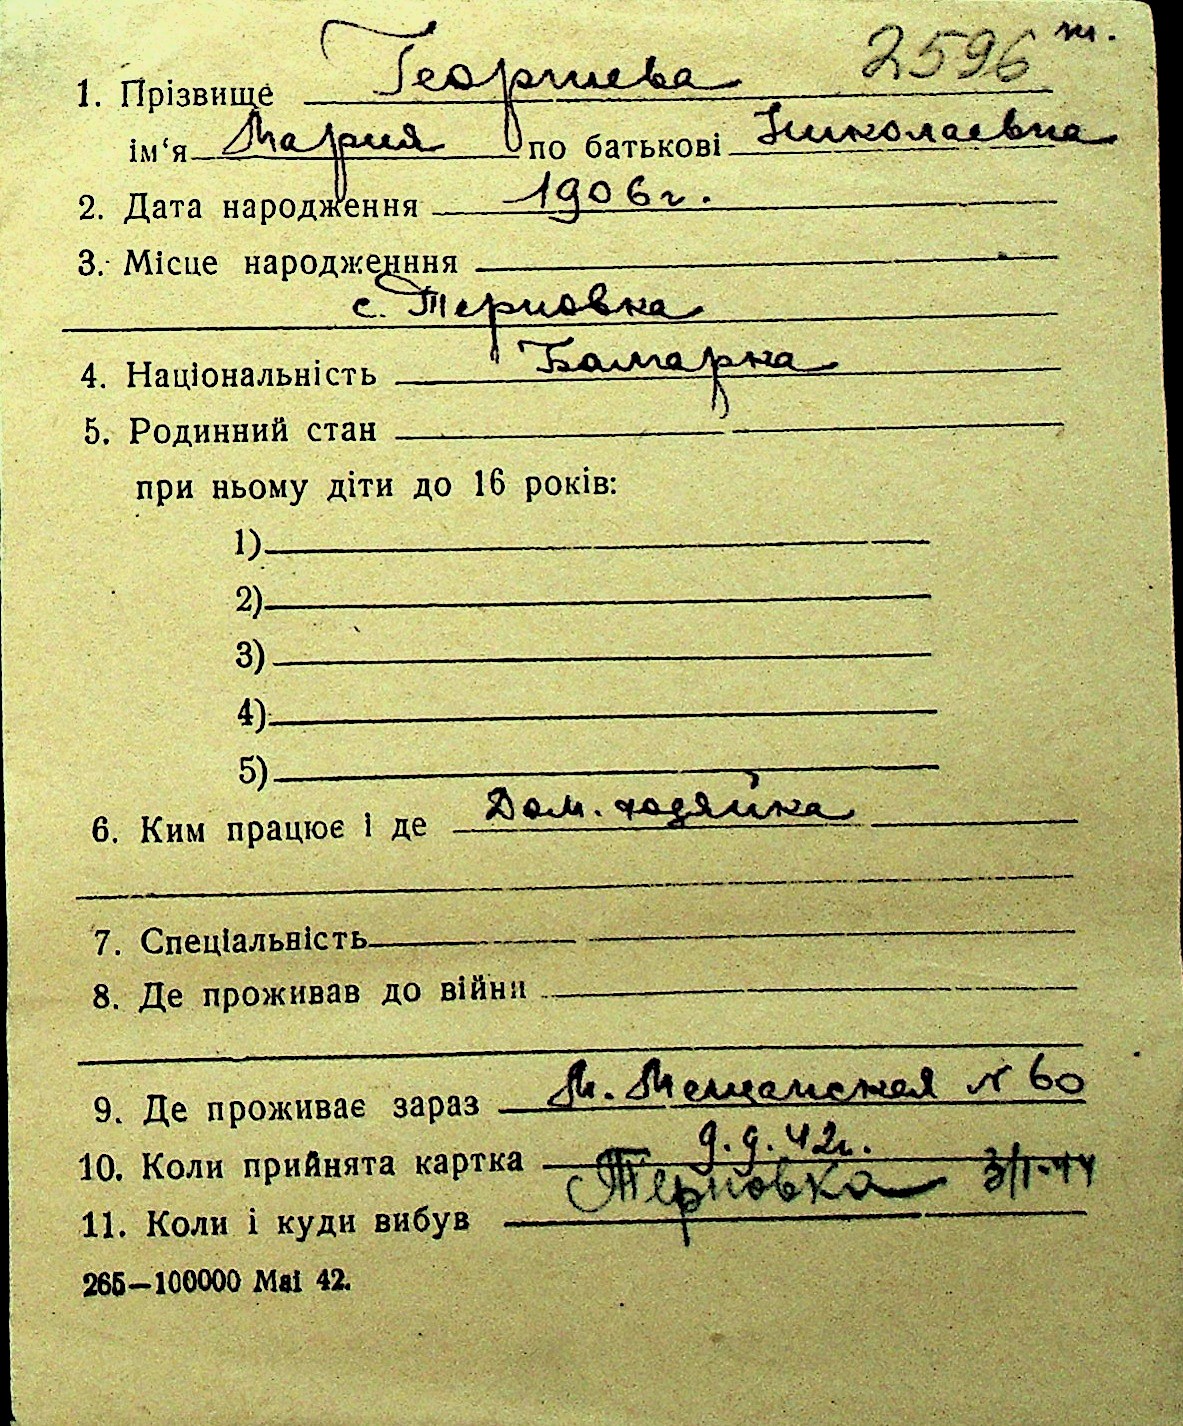 2596 т.
1. Прізвище Георгиева
ім‘я Мария по батькові Николаевна
2. Дата народження 1906 г.
3. Місце народженння
с. Терновка
4. Національність Болгарка
5. Родинний стан
при ньому діти до 16 років:
1)
2)
3)
4)
5)
6. Ким працює і де Дом. хозяйка
7. Спеціальність
8. Де проживав до війни
9. Де проживає зараз М. Мещанская № 60
10. Коли прийнята картка 9.9.42г.
11. Коли і куди вибув Терновка 3/I-44
265—100000 Mai 42.